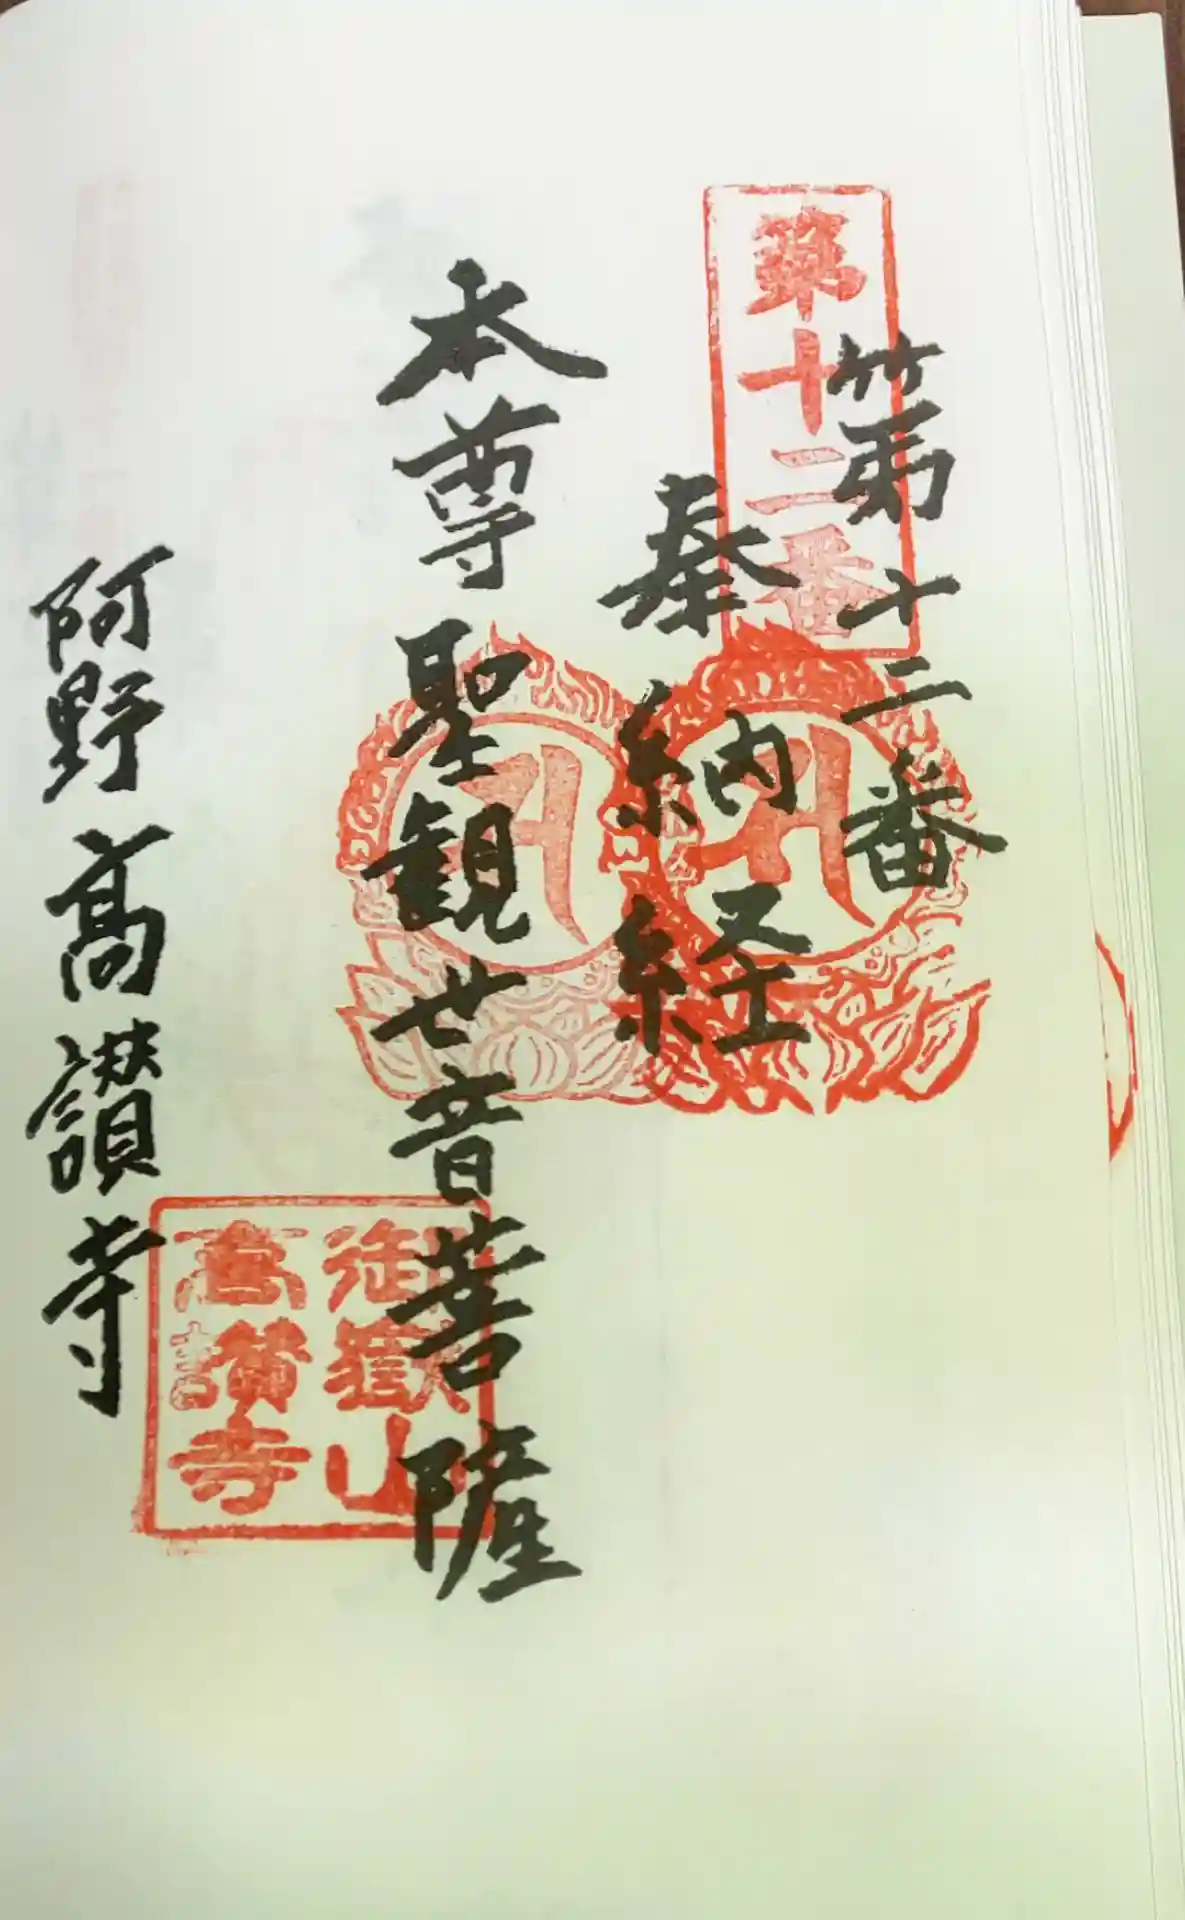 第十二番
第十二番
奉納経
本尊聖観世音菩薩
御嶽山
高讃寺
阿野高讃寺